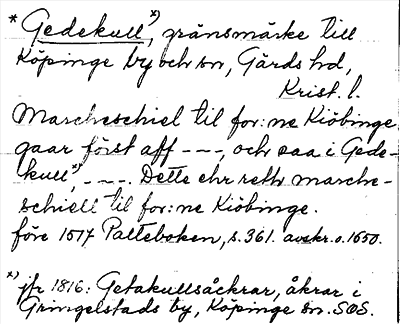 * Gedekull *), gränsmärke till
Köpinge by och sn, Gärds hd,
Krist. l.
Marcheschiel til for:ne Kiöbinge
gaar först aff ---, och saa i Gede-
kull *), ---. Dette ehr rett marche-
schiell til for:ne Kiöbinge.
före 1517 Palteboken, s. 361. avskr. o. 1650.
*) jfr 1816: Getakullsåckrar, åkrar i
Gringelstads by, Köpinge sn. SOS.